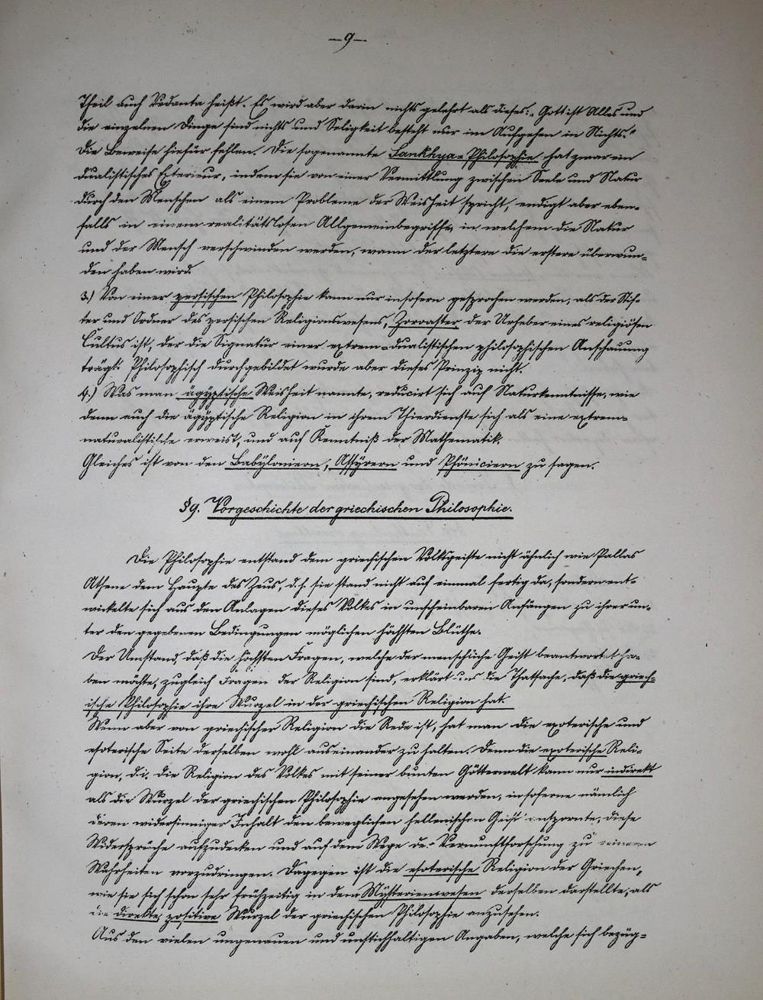 —9—
Theil auch Vedanta heißt. Es wird aber darin nichts gelehrt als dieses: „Gott ist Alles und
die einzelnen Dinge sind nichts und Seligkeit besteht nur im Aufgehen in Nichts.“
Die Beweise hiefür fehlen. Die sogenannte Sankhya-Philosophie hat zwar ein
dualistisches Exterieur, indem sie von einer Vermittlung zwischen Seele und Natur
durch den Menschen als einem Probleme der Weisheit spricht, endigt aber eben-
falls in einem realitätslosen Allgemeinbegriffe, in welchem die Natur
und der Mensch verschwinden werden, wann der letztere die erstere überwun-
den haben wird.
3.) Von einer persischen Philosophie kann nur insofern gesprochen werden, als der Stif-
ter und Ordner des persischen Religionswesens, Zoroaster der Urheber eines religiösen
Cultus ist, der die Signatur einer extrem-dualistischen philosophischen Anschauung
trägt. Philosophisch durchgebildet wurde aber dieses Prinzip nicht.
4.) Was man ägyptische Weisheit nannte, reducirt sich auf Naturkenntnisse, wie
denn auch die ägyptische Religion in ihrem Thierdienste sich als eine extrem-
naturalistische erweist, und auf Kenntniß der Mathematik.
Gleiches ist von den Babyloniern, Assyrern und Phöniciern zu sagen.
§9. Vorgeschichte der griechischen Philosophie.
Die Philosophie entstand dem griechischen Volksgeiste nicht ähnlich wie Pallas
Athene dem Haupte des Zeus, d.h. sie stand nicht auf einmal fertig da, sondern ent-
wickelte sich aus den Anlagen dieses Volkes in unscheinbaren Anfängen zu ihrer un-
ter den gegebenen Bedingungen möglichen höchsten Blüthe.
Der Umstand, daß die höchsten Fragen, welche der menschliche Geist beantwortet ha-
ben möchte, zugleich Fragen der Religion sind, erklärt uns die Thatsache, daß die griech-
ische Philosophie ihre Wurzel in der griechischen Religion hat.
Wenn aber von griechischer Religion die Rede ist, hat man die exoterische und
esoterische Seite derselben wohl auseinander zu halten. Denn die exoterische Reli-
gion, d.i. die Religion des Volkes mit seiner bunten Götterwelt kann nur indirekt
als die Wurzel der griechischen Philosophie angesehen werden, insoferne nämlich
deren widersinniger Inhalt den beweglichen hellenischen Geist anspornte, diese
Widersprüche aufzudecken und auf dem Wege der Vernunftforschung zu reineren
Wahrheiten vorzudringen. Dagegen ist die esoterische Religion der Griechen,
wie sie sich schon sehr frühzeitig in dem Mysterienwesen derselben darstellte, als
die direkte, positive Wurzel der griechischen Philosophie anzusehen.
Aus den vielen ungenauen und unstichhaltigen Angaben, welche sich bezüg-